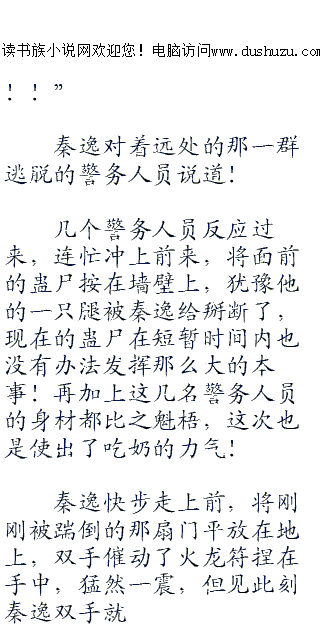 读书族小说网欢迎您！电脑访问www.dushuzu.com
！！”
秦逸对着远处的那一群
逃脱的警务人员说道！
几个警务人员反应过
来，连忙冲上前来，将面前
的蛊尸按在墙壁上，犹豫他
的一只腿被秦逸给掰断了，
现在的蛊尸在短暂时间内也
没有办法发挥那么大的本
事！再加上这几名警务人员
的身材都比之魁梧，这次也
是使出了吃奶的力气！
秦逸快步走上前，将刚
刚被踹倒的那扇门平放在地
上，双手催动了火龙符捏在
手中，猛然一震，但见此刻
秦逸双手就